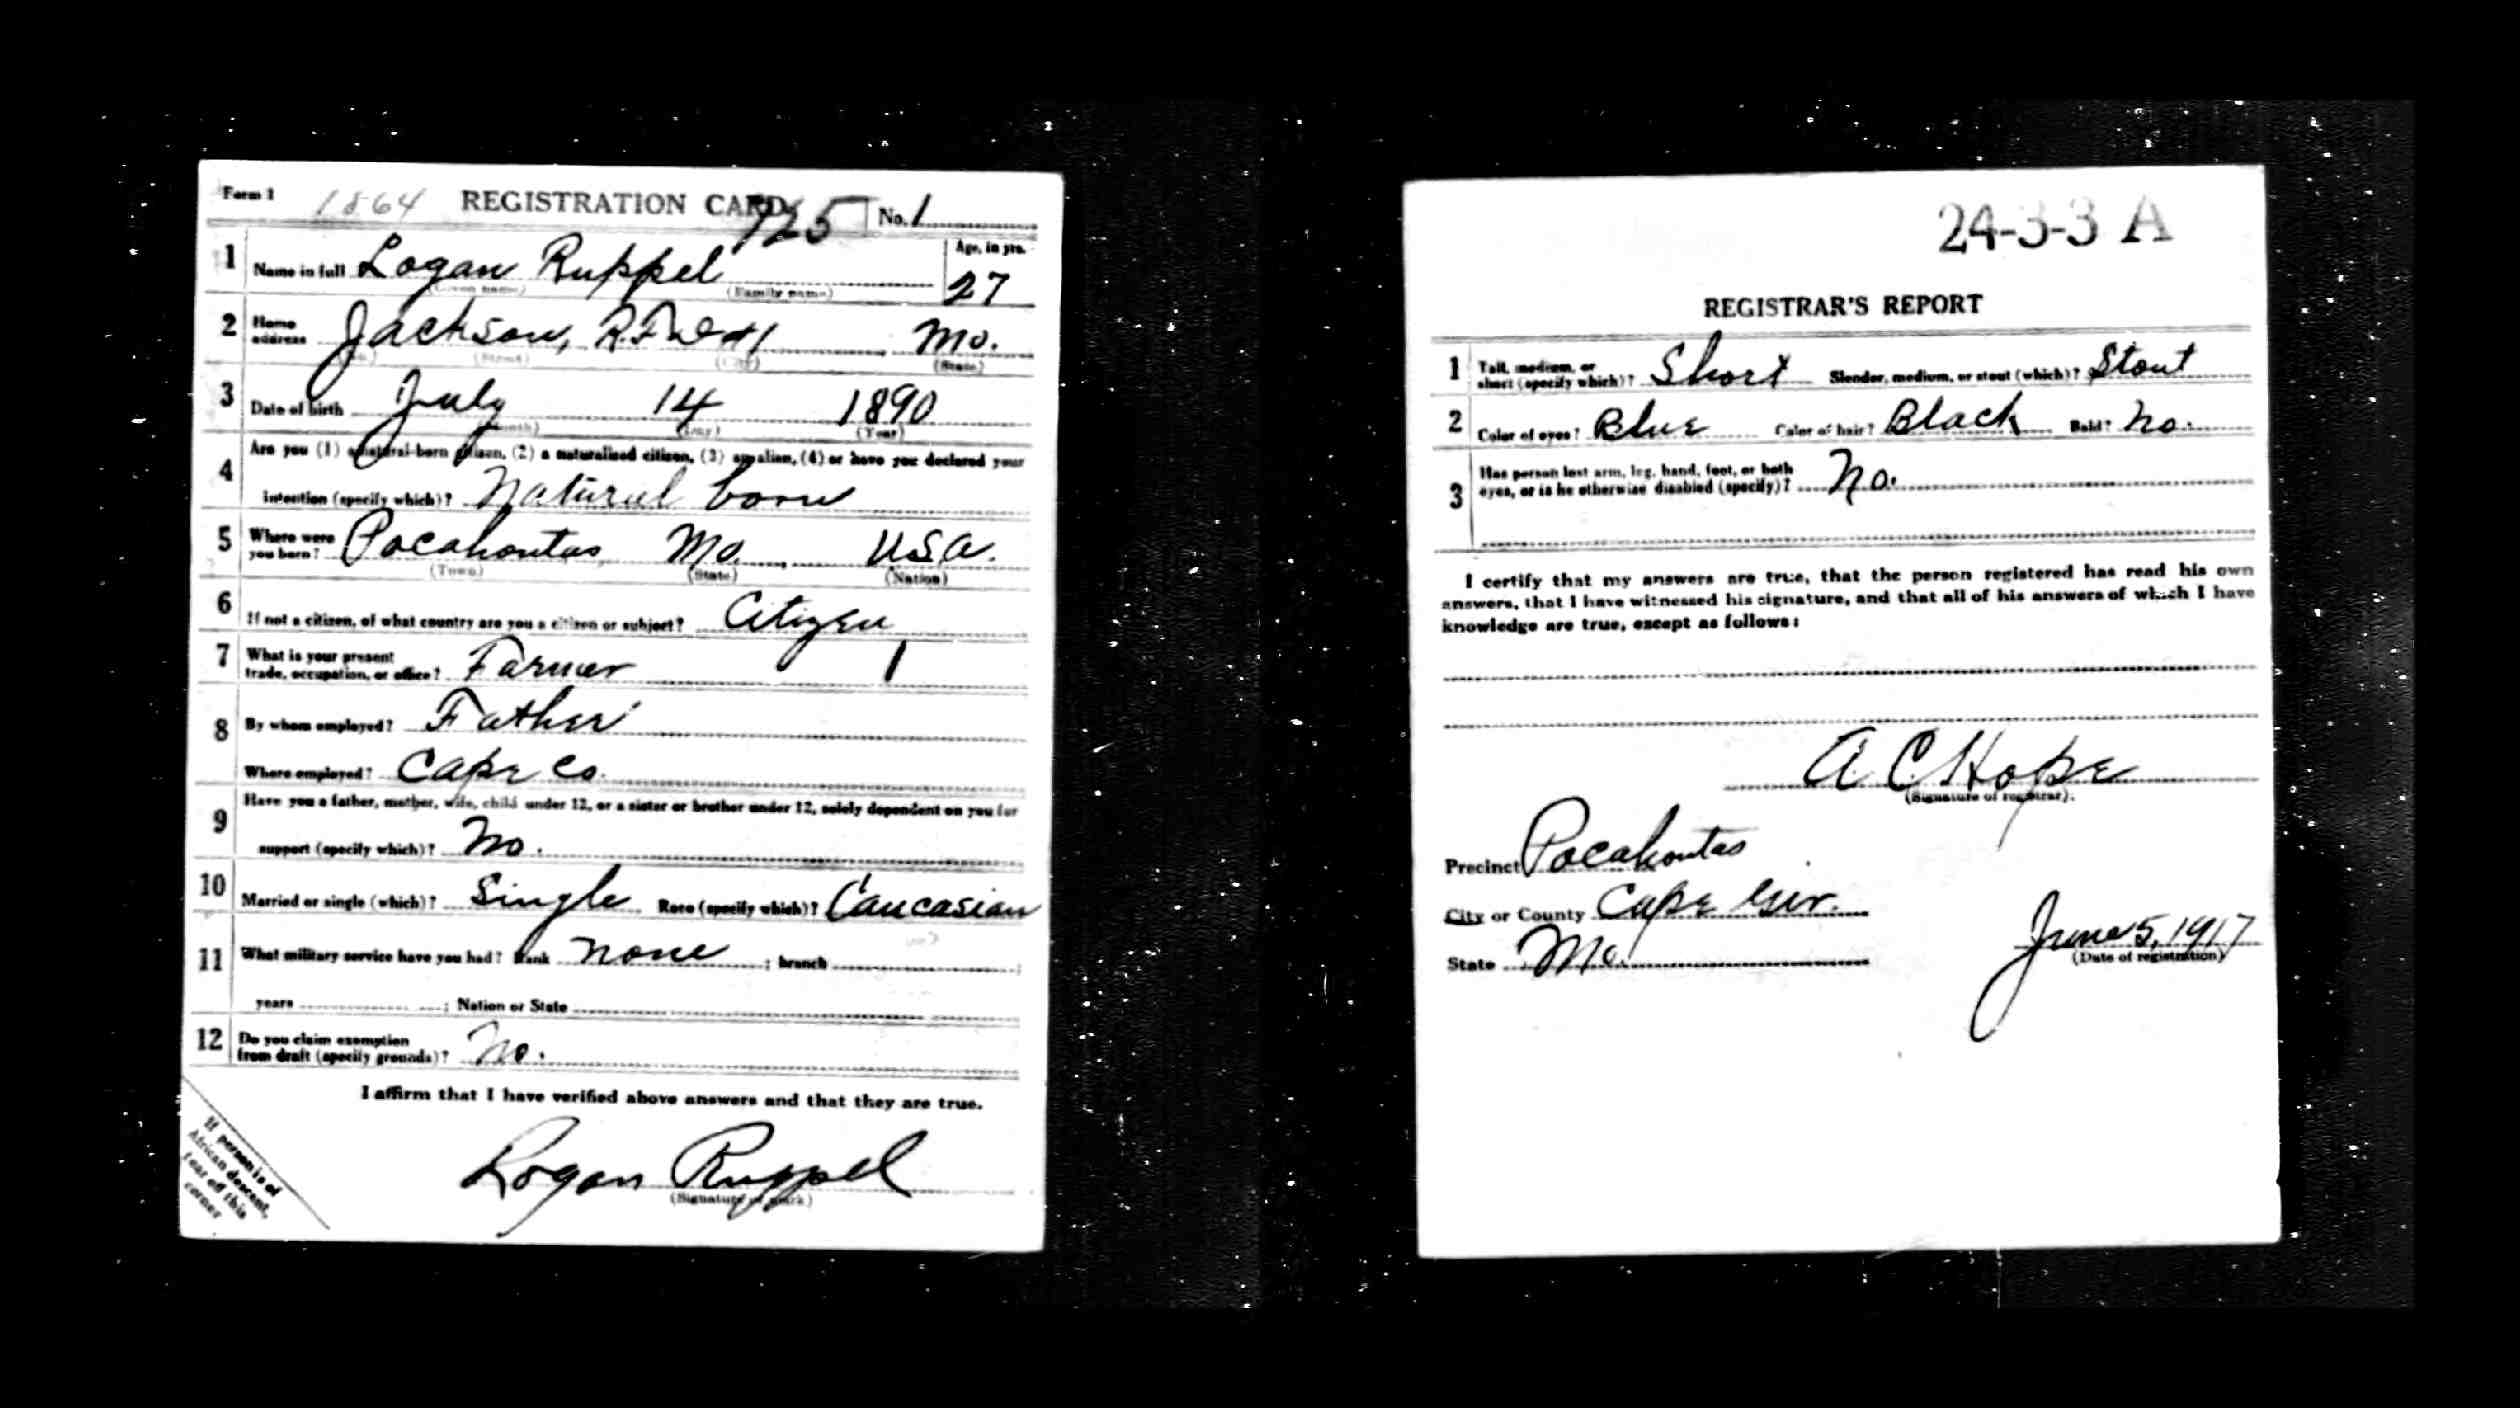 Form 1 1864 REGISTRATION CARD 725 No. 1
1 Name in full Logan Ruppel Age, in yrs. 27
(Given name) (Family name)
2 Home address Jackson, R.F.D #1 Mo.
(No.) (Street) (City) (State)
3 Date of birth July 14 1890
(Month) (Day) (Year)
4 Are you (1) a natural-born citizen, (2) a naturalized citizen, (3) an alien, (4) or have you declared your
intention (specify which)? Natural born
5 Where were you born? Pocahontas Mo. USA.
(Town) (State) (Nation)
6 If not a citizen, of what country are you a citizen or subject? Citizen
7 What is your present trade, occupation, or office? Farmer 1
8 By whom employed? Father
Where employed? Cape Co.
9 Have you a father, mother, wife, child under 12, or a sister or brother under 12, solely dependent on you for
support (specify which)? No.
10 Married or single (which)? Single Race (specify which)? Caucasian
11 What military service have you had? Rank none ; branch
years ; Nation or State
12 Do you claim exemption from draft (specify grounds)? No.
I affirm that I have verified above answers and that they are true.
Logan Ruppel
(Signature or mark)
If person is of
African descent,
tear off this
corner
24-3-3 A
REGISTRAR'S REPORT
1 Tall, medium, or short (specify which)? Short Slender, medium, or stout (which)? Stout
2 Color of eyes? Blue Color of hair? Black Bald? No.
3 Has person lost arm, leg, hand, foot, or both
eyes, or is he otherwise disabled (specify)? No.
I certify that my answers are true, that the person registered has read his own
answers, that I have witnessed his signature, and that all of his answers of which I have
knowledge are true, except as follows:
A C Hope
(Signature of registrar)
Precinct Pocahontas
City or County Cape Gir.
State Mo.
June 5, 1917
(Date of registration)